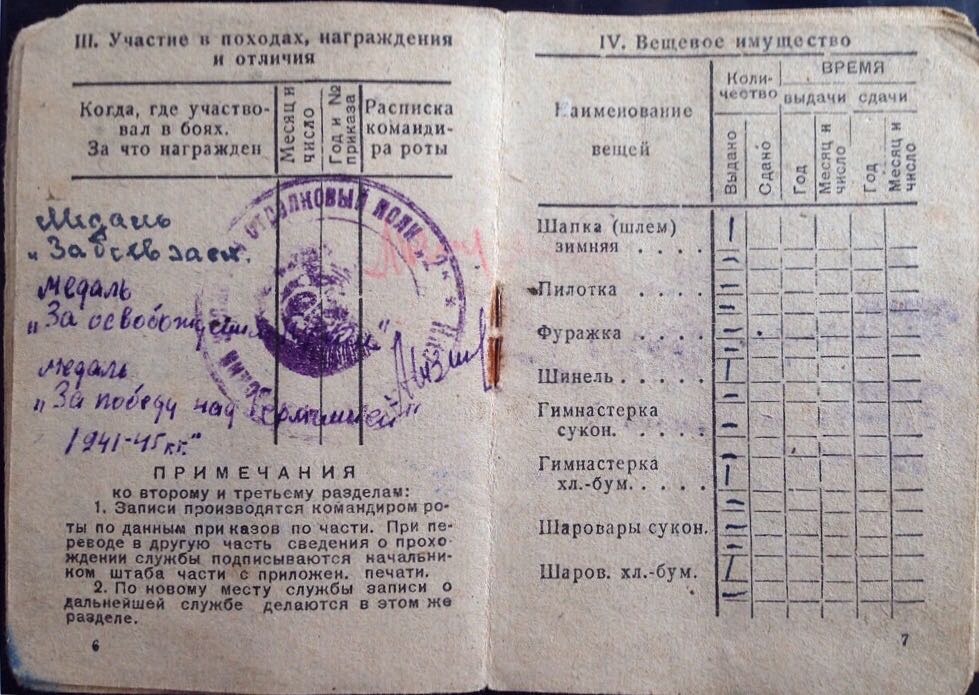 III. Участие в походах, награждения
и отличия
Когда, где участво-
вал в боях.
За что награжден
Месяц и
число
Год и №
приказа
Расписка
команди-
ра роты
СТРЕЛКОВЫЙ ПОЛК
Медаль
медаль
"За освобождение
медаль
"За победу над Германией
1941-45 гг."
ПРИМЕЧАНИЯ
ко второму и третьему разделам:
1. Записи производятся командиром ро-
ты по данным приказов по части. При пе-
реводе в другую часть сведения о прохо-
ждении службы подписываются начальни-
ком штаба части с приложен. печати.
2. По новому месту службы записи о
дальнейшей службе делаются в этом же
разделе.
6
IV. Вещевое имущество
Наименование
вещей
Коли-
чество
ВРЕМЯ
выдачи
сдачи
Выдано
Сдано
Год
Месяц и
число
Год
Месяц и
число
Шапка (шлем)
зимняя . . . .
Пилотка . . . .
Фуражка . . . .
Шинель . . . . .
Гимнастерка
сукон. . . . . .
Гимнастерка
хл.-бум. . . . .
Шаровары сукон.
Шаров. хл.-бум.
7